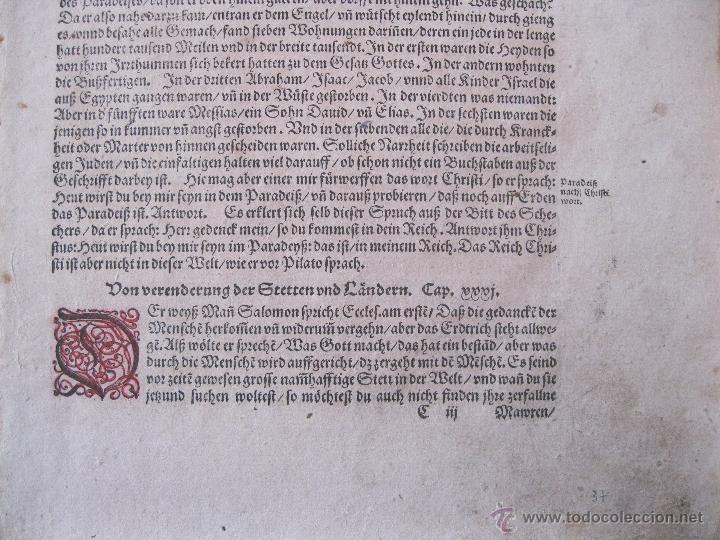 des Paradeiß/ da
Was geschach?
Da er also nahe darzu kam/ entran er dem Engel/ vñ wütscht eylendt hinein/ durch gieng
es vnnd besahe alle Gemach/ fand sieben Wohnungen dariñen/ deren ein jede in der lenge
hatt hundert tausend Meilen vnd in der breite tausendt. In der ersten waren die Heyden so
von jhren Irrthummen sich bekert hatten zu dem Gesatz Gottes. In der andern wohnten
die Bußfertigen. In der dritten Abraham/ Isaac/ Jacob/ vnnd alle Kinder Israel die
auß Egypten gangen waren/ vñ in der Wüste gestorben. In der vierdten was niemandt:
Aber in d' fünfften ware Messias/ ein Sohn Dauid/ vñ Elias. In der sechsten waren die
jenigen so in kummer vñ angst gestorben. Vnd in der siebenden alle die/ die durch Kranck-
heit oder Marter von hinnen gescheiden waren. Solliche Narrheit schreiben die arbeitseli-
gen Juden/ vñ die einfaltigen halten viel darauff/ ob schon nicht ein Buchstaben auß der
Geschrifft darbey ist. Hie mag aber einer fürwerffen das wort Christi/ so er sprach:
Heut wirst du bey mir seyn in dem Paradeiß/ vñ darauß probieren/ daß noch auff Erden
das Paradeiß ist. Antwort. Es erklert sich selb dieser Spruch auß der Bitt des Sche-
chers/ da er sprach: Herr gedenck mein/ so du kommest in dein Reich. Antwort jhm Chri-
stus: Heut wirst du bey mir seyn im Paradeyß: das ist/ in meinem Reich. Das Reich Chri-
sti ist aber nicht in dieser Welt/ wie er vor Pilato sprach.
Paradeiß
nach Christi
wort.
Von verenderung der Stetten vnd Ländern. Cap. xxxj.
DEr weyß Mañ Salomon spricht Eccles. am erstē/ Daß die gedanckē der
Menschē herkoñen vñ widerum̄ vergehn/ aber das Erdtrich steht allwe-
ge. Alß wölte er sprechē/ Was Gott macht/ das hat ein beståd/ aber was
durch die Menschē wird auffgericht/ dz zergeht mit dē Mēschē. Es seind
vor zeitē gewesen grosse nam̄hafftige Stett in der Welt/ vnd wañ du sie
jetzund suchen woltest/ so möchtest du auch nicht finden jhre zerfallne
C iij Mawren/
37
© www.todocoleccion.net